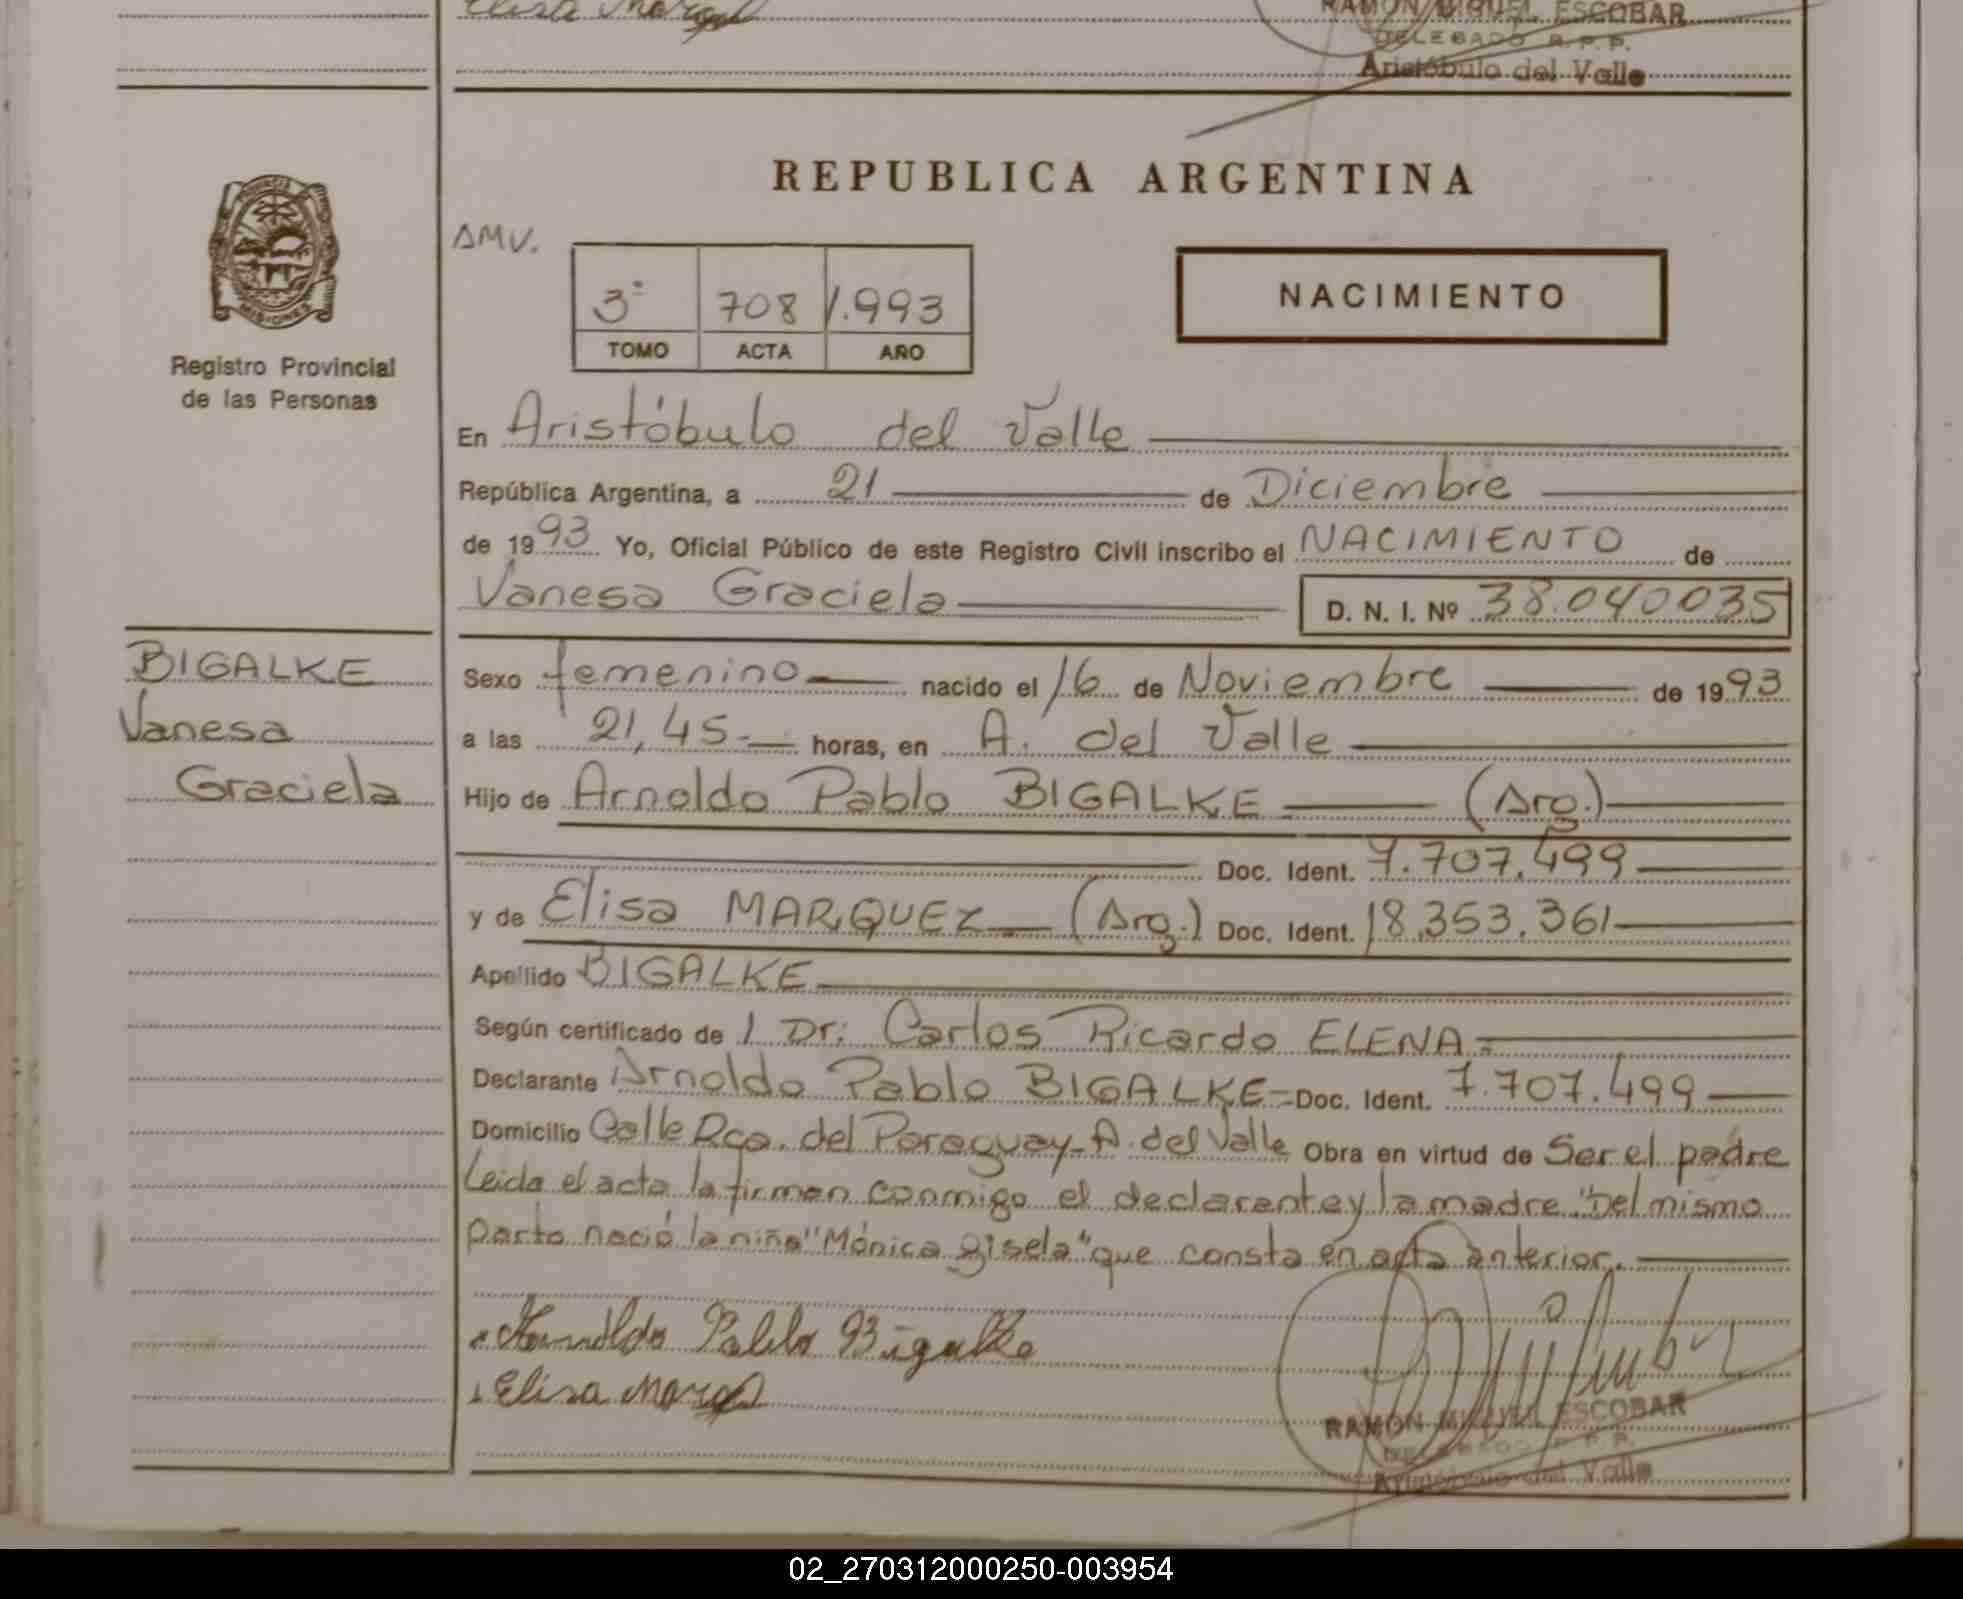 Elisa Marq
RAMON MIGUEL ESCOBAR
DELEGADO R.P.P.
Aristóbulo del Valle
REPUBLICA ARGENTINA
PROVINCIA
MISIONES
Registro Provincial
de las Personas
AMV.
3º 708 1.993
TOMO ACTA AÑO
NACIMIENTO
En Aristóbulo del Valle
República Argentina, a 21 de Diciembre
de 1993 Yo, Oficial Público de este Registro Civil inscribo el NACIMIENTO de
Vanesa Graciela D. N. I. Nº 38.040035
BIGALKE
Vanesa
Graciela
Sexo femenino nacido el 16 de Noviembre de 1993
a las 21,45 horas, en A. del Valle
Hijo de Arnoldo Pablo BIGALKE (Arg.)
Doc. Ident. 7.707.499
y de Elisa MARQUEZ (Arg.) Doc. Ident. 18.353.361
Apellido BIGALKE
Según certificado de 1 Dr: Carlos Ricardo ELENA
Declarante Arnoldo Pablo BIGALKE Doc. Ident. 7.707.499
Domicilio Calle Rca. del Paraguay-A. del Valle Obra en virtud de Ser el padre
Leida el acta la firman conmigo el declarante y la madre. "Del mismo
parto nació la niña "Mónica Gisela" que consta en acta anterior.
Arnoldo Pablo Bigalke
Elisa Marq
RAMON MIGUEL ESCOBAR
DELEGADO R.P.P.
Aristóbulo del Valle
02_270312000250-003954